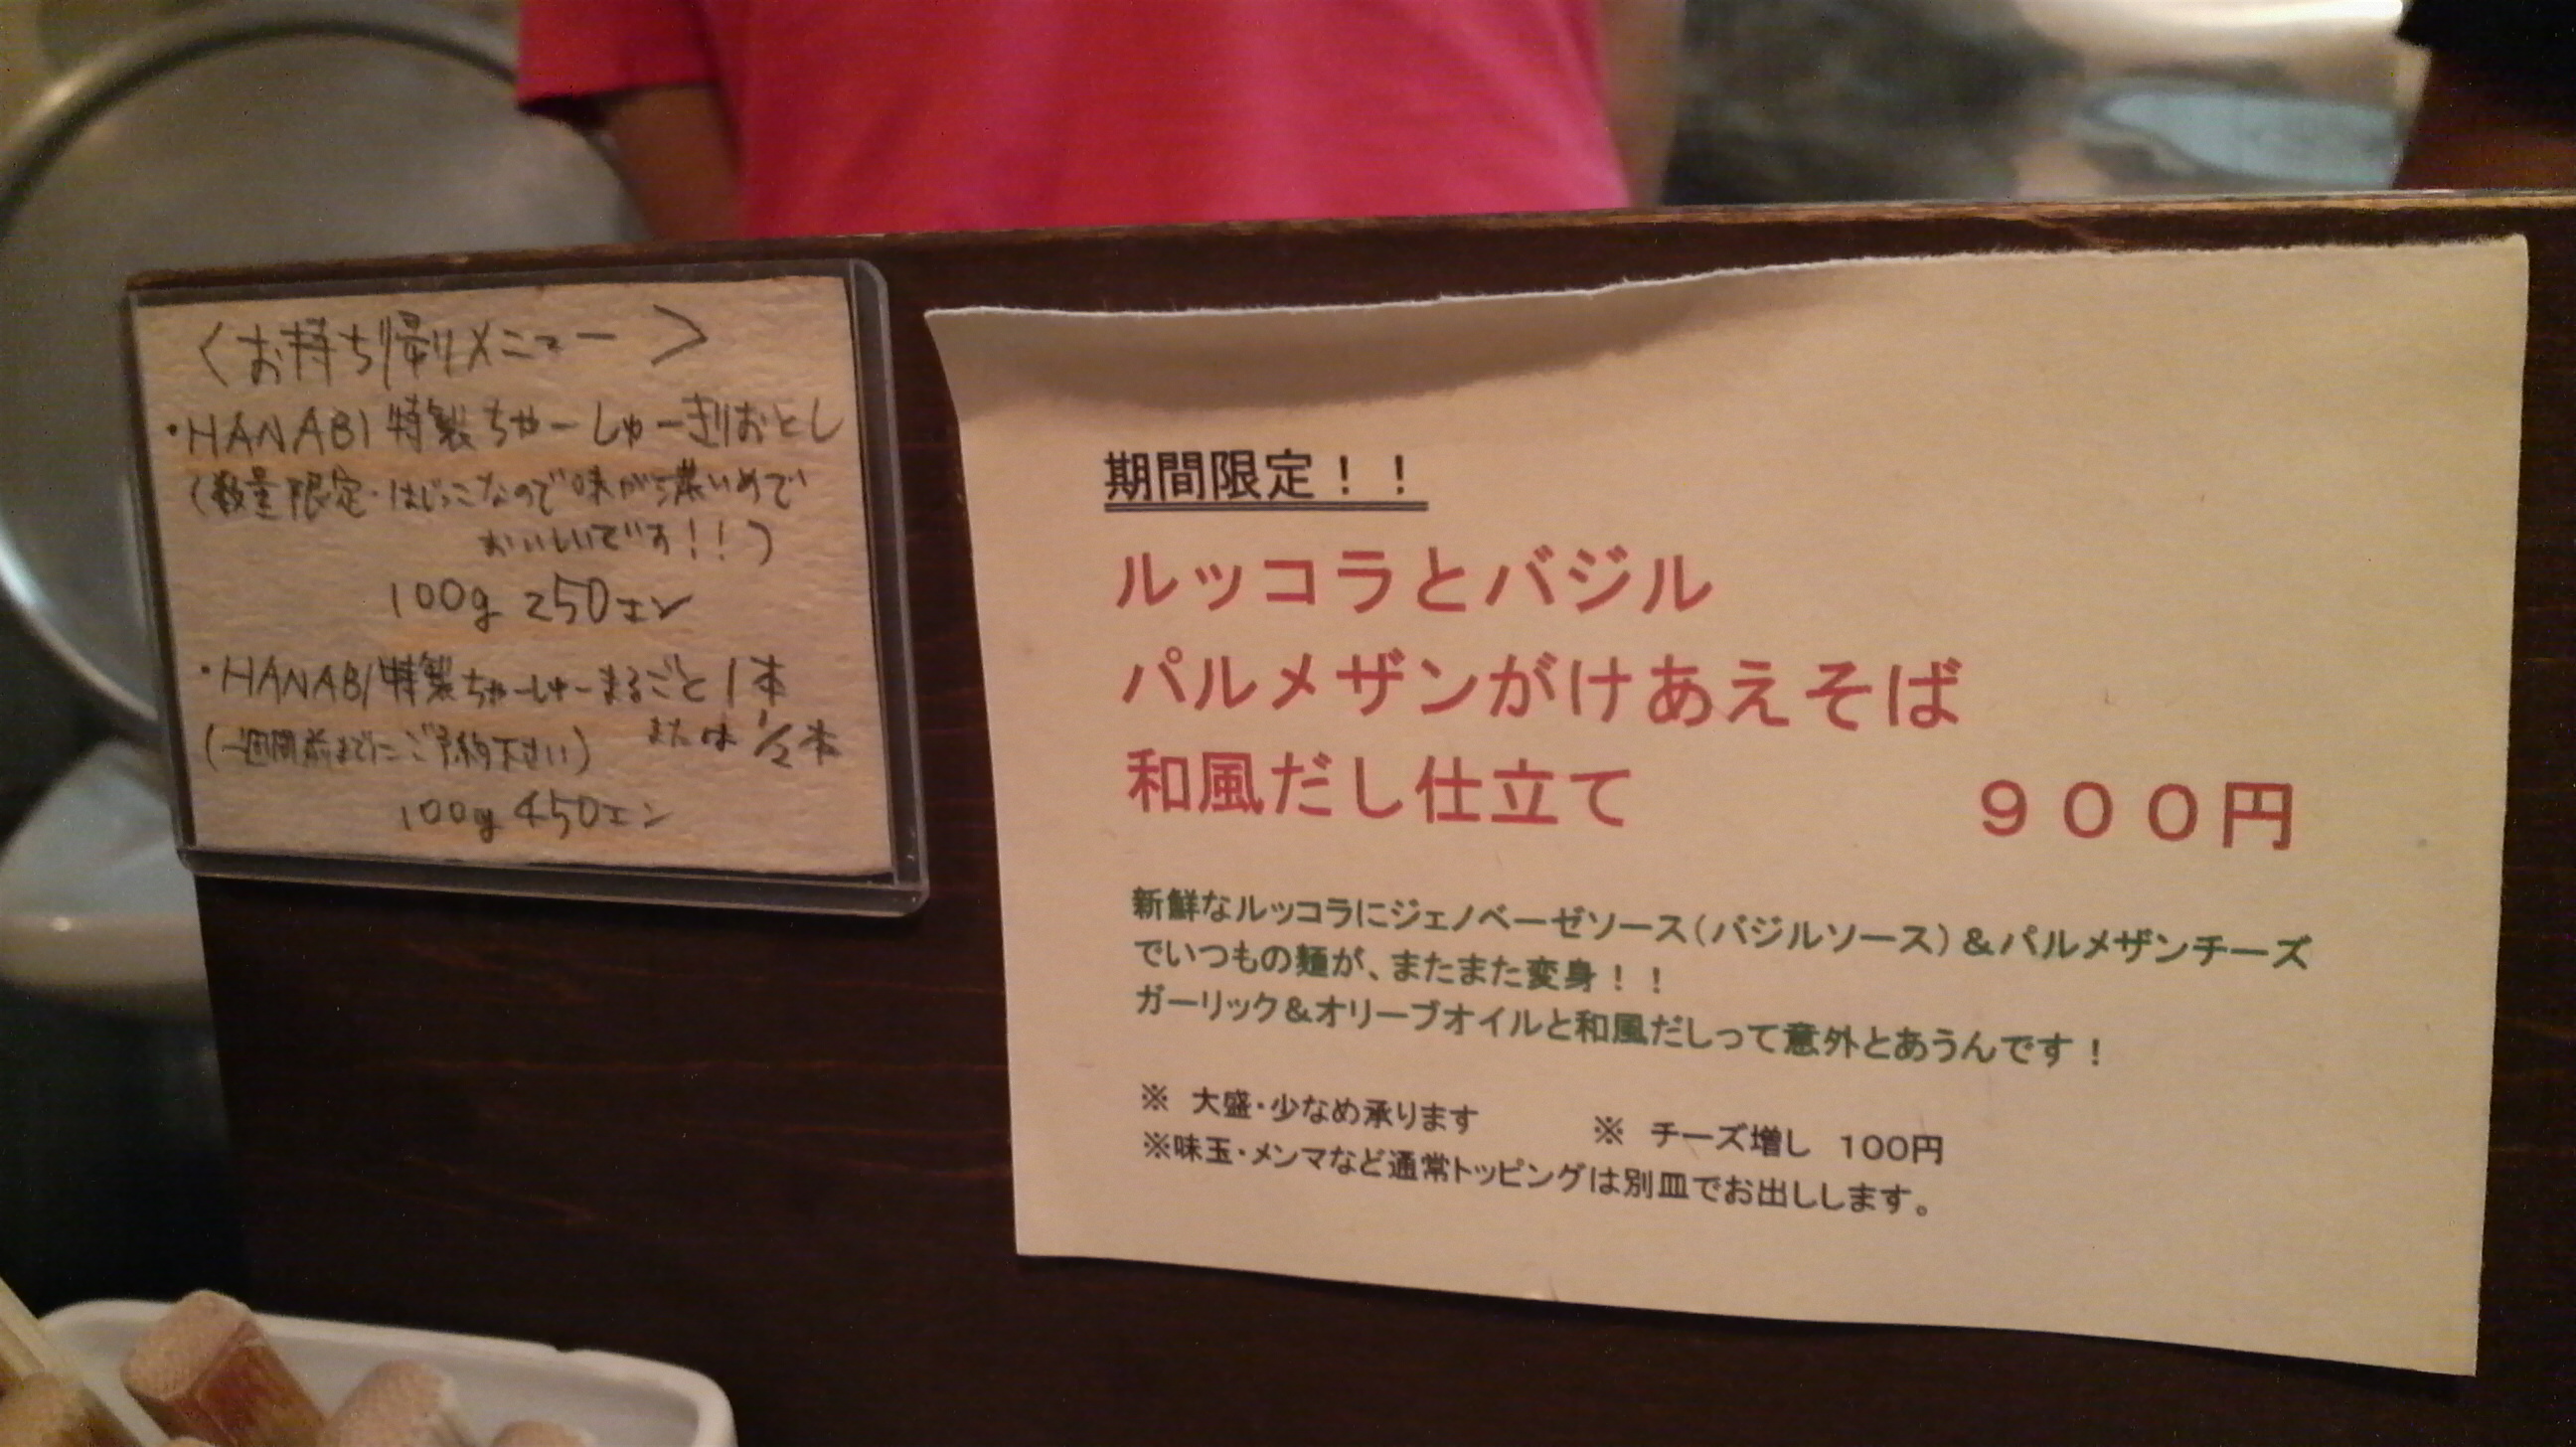 〈お持ち帰りメニュー〉
・HANABI特製ちゃーしゅー切おとし
(数量限定・はじっこなので味が濃いめで
おいしいです!!)
100g 250エン
・HANABI特製ちゃーしゅーまるごと1本
または1/2本
(一週間前までにご予約下さい)
100g 450エン
期間限定！！
ルッコラとバジル
パルメザンがけあえそば
和風だし仕立て ９００円
新鮮なルッコラにジェノベーゼソース(バジルソース)＆パルメザンチーズ
でいつもの麺が、またまた変身！！
ガーリック＆オリーブオイルと和風だしって意外とあうんです！
※ 大盛・少なめ承ります ※ チーズ増し 100円
※味玉・メンマなど通常トッピングは別皿でお出しします。